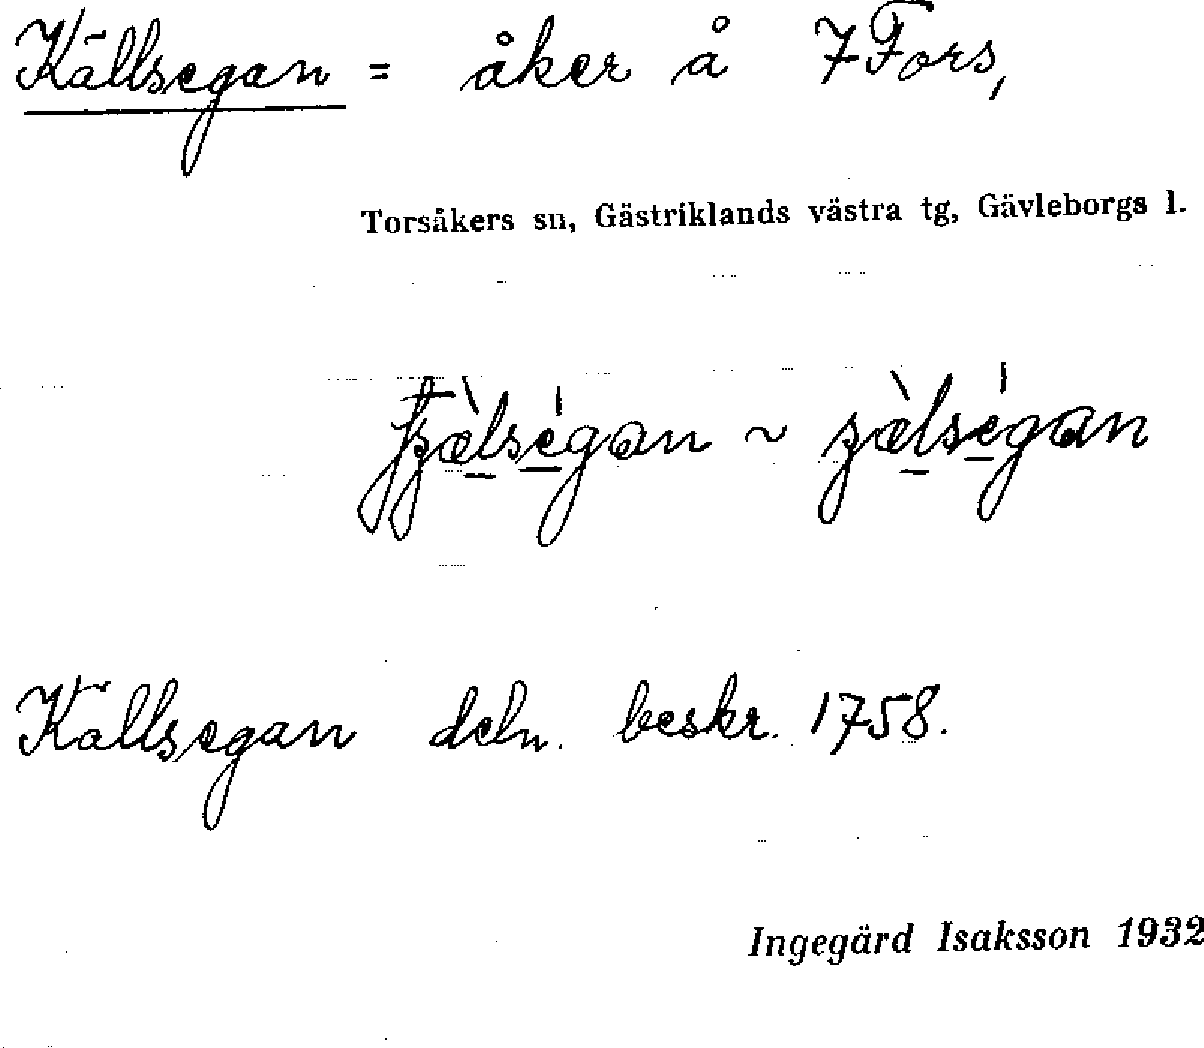 Källsegan = åker å 7 Fors,
Torsåkers sn, Gästriklands västra tg, Gävleborgs l.
Källsegan deln. beskr. 1758.
Ingegärd Isaksson 1932